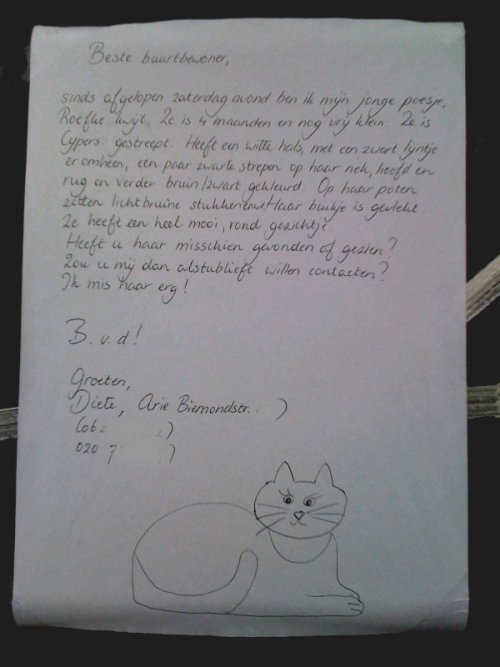 Beste buurtbewoner,
sinds afgelopen zaterdag avond ben ik mijn jonge poesje,
Roefke kwijt. Ze is 4 maanden en nog vrij klein. Ze is
Cypers gestreept. Heeft een witte hals, met een zwart lijntje
er omheen, een paar zwarte strepen op haar nek, hoofd en
rug en verder bruin/zwart gekleurd. Op haar poten
zitten licht bruine stukken Haar buikje is gevlekt
Ze heeft een heel mooi, rond gezichtje.
Heeft u haar misschien gevonden of gezien?
Zou u mij dan alstublieft willen contacten?
Ik mis haar erg!
B.v.d!
Groeten,
Diete, Arie Biemondstr. )
(06 )
020 7 )